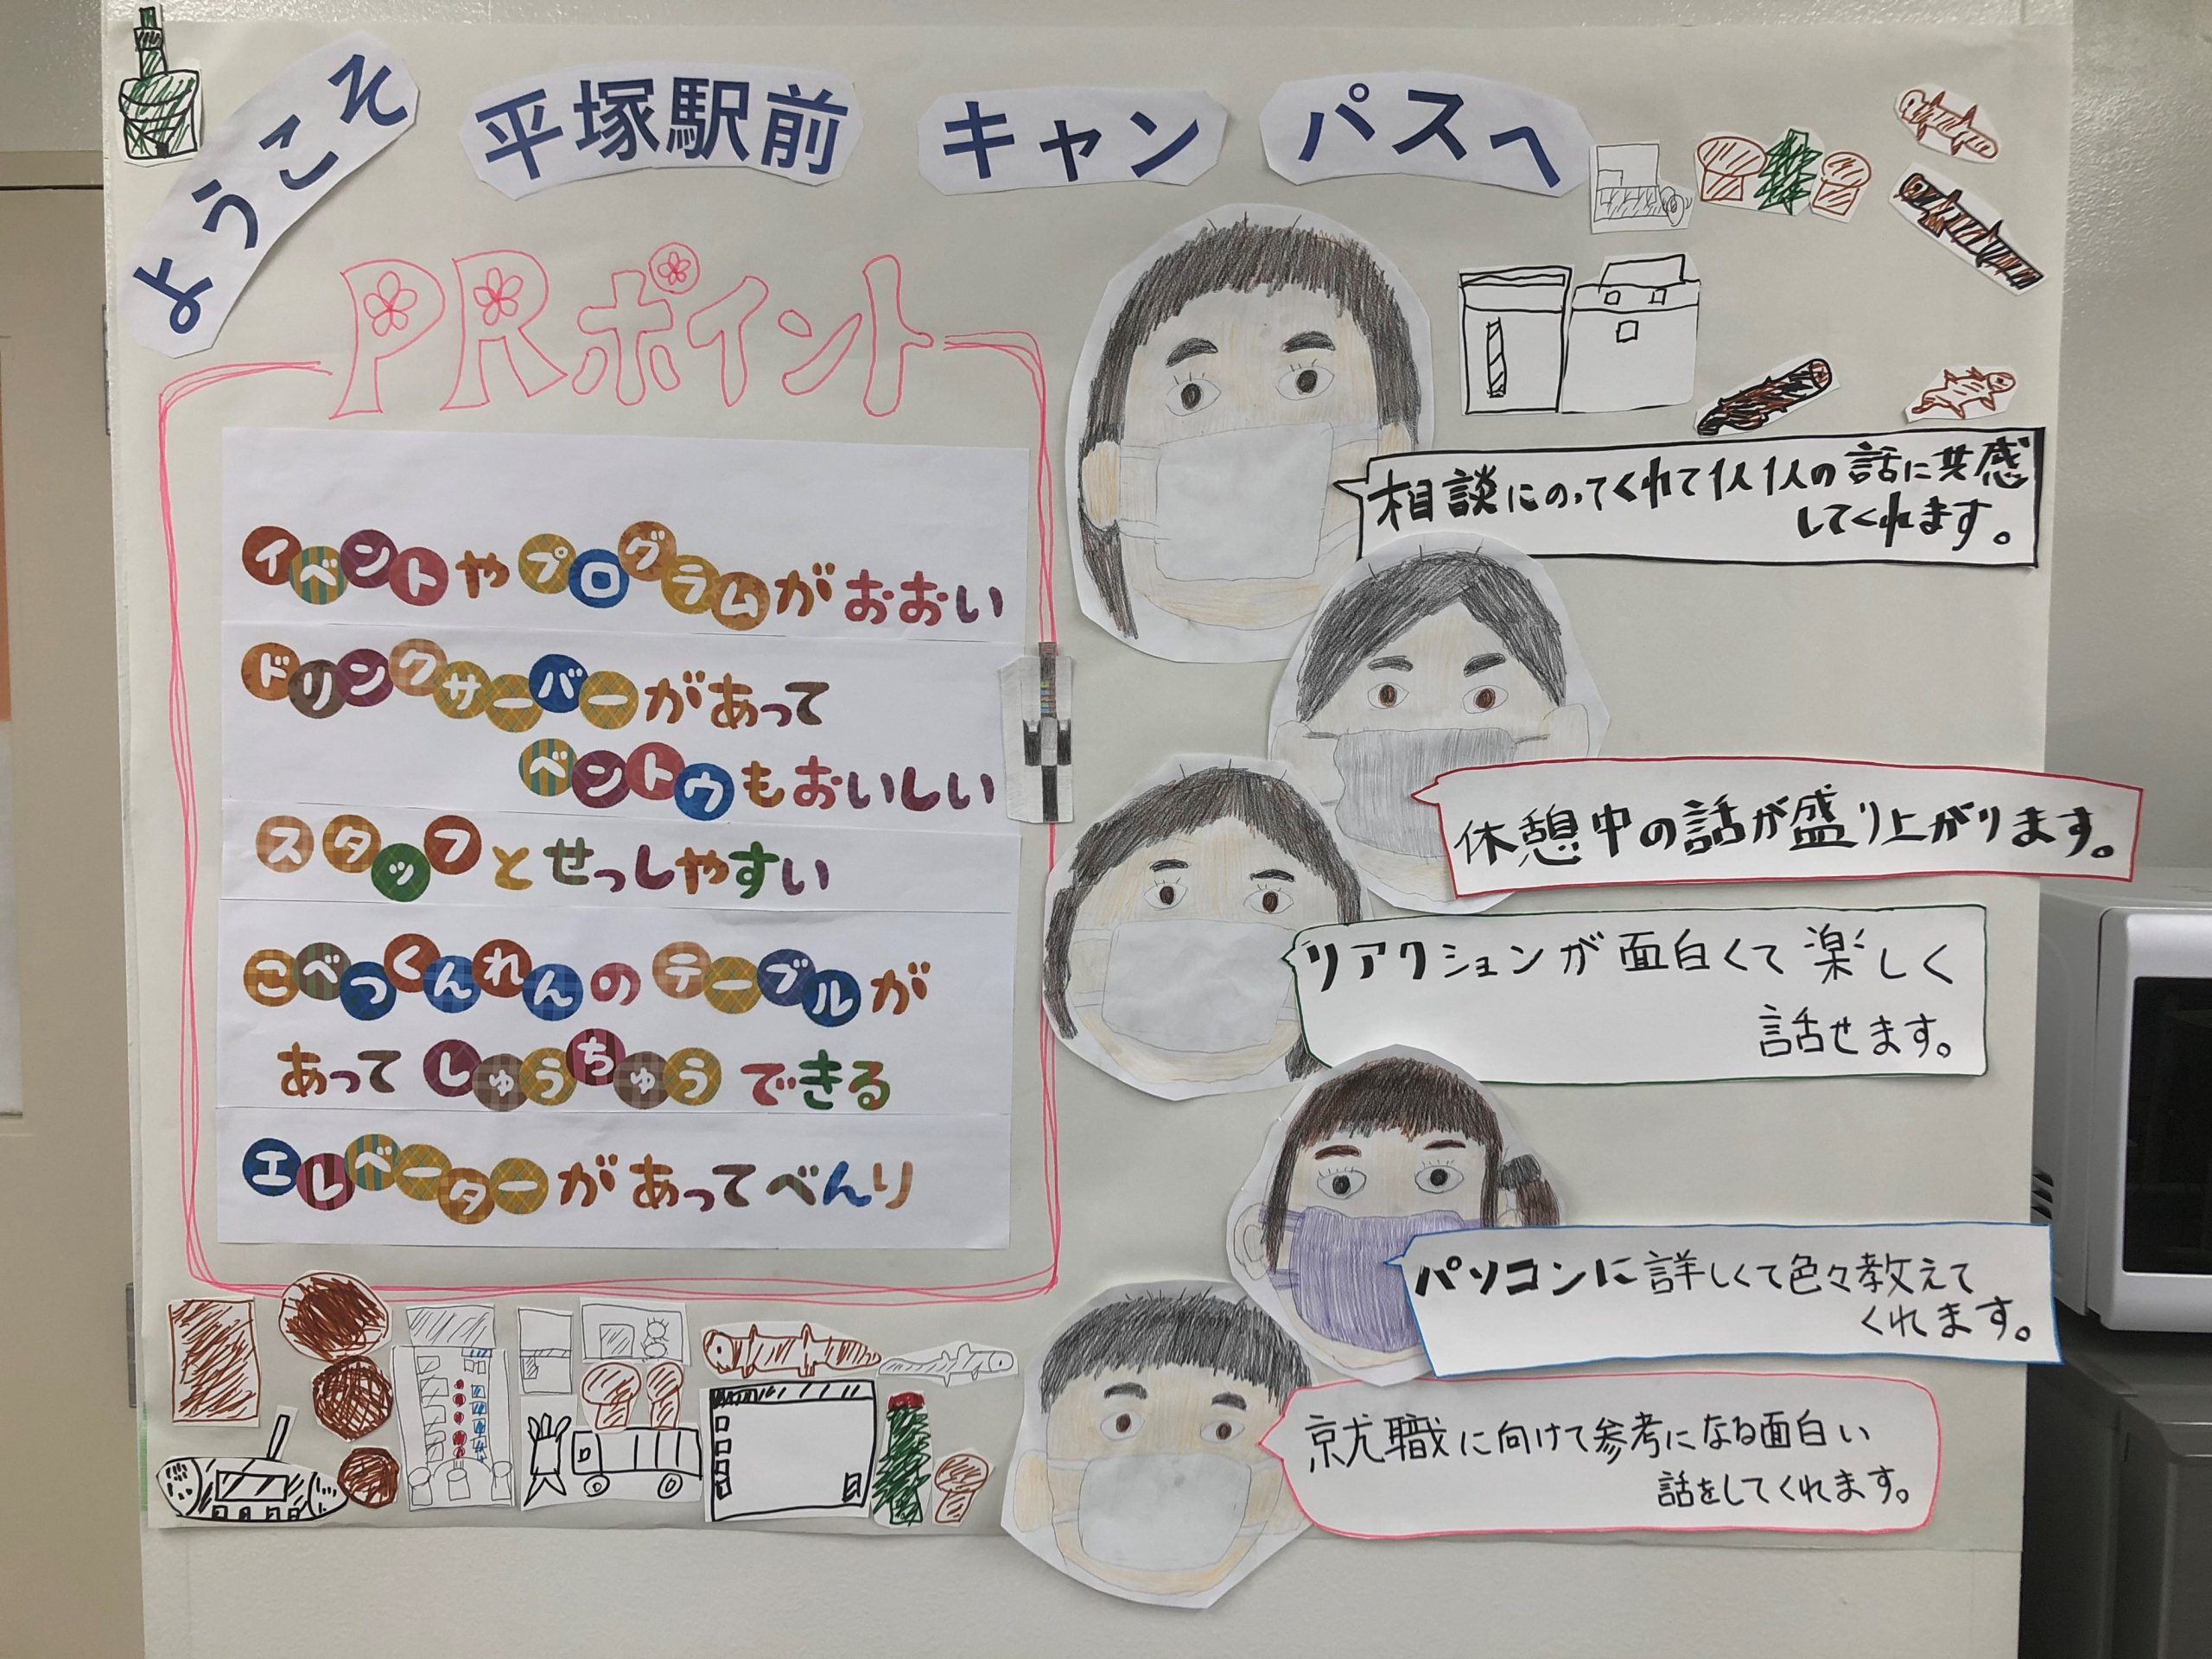 ようこそ 平塚駅前 キャンパスへ
PRポイント
イベントやプログラムがおおい
ドリンクサーバーがあって
ベントウもおいしい
スタッフとせっしやすい
こべつくんれんのテーブルが
あってしゅうちゅうできる
エレベーターがあってべんり
相談にのってくれて1人1人の話に共感
してくれます。
休憩中の話が盛り上がります。
リアクションが面白くて楽しく
話せます。
パソコンに詳しくて色々教えて
くれます。
就職に向けて参考になる面白い
話をしてくれます。